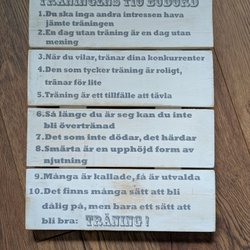 TRÄNINGENS TIO BUDORD
1.Du ska inga andra intressen hava
jämte träningen
2.En dag utan träning är en dag utan
mening
3.När du vilar, tränar dina konkurrenter
4.Den som tycker träning är roligt,
tränar för lite
5.Träning är ett tillfälle att tävla
6.Så länge du är seg kan du inte
bli övertränad
7.Det som inte dödar, det härdar
8.Smärta är en upphöjd form av
njutning
9.Många är kallade, få är utvalda
10.Det finns många sätt att bli
dålig på, men bara ett sätt att
bli bra: TRÄNING!